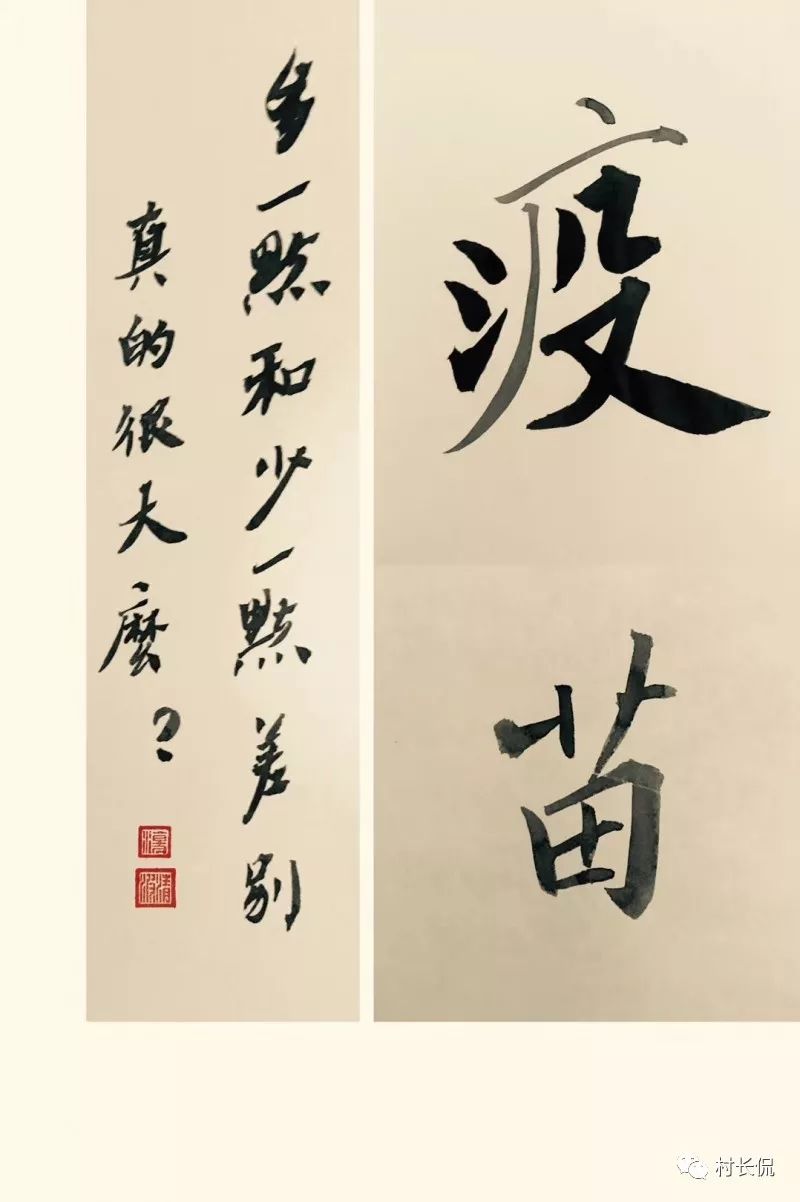 疫苗
多一點和少一點差别
真的很大麼?
村长侃